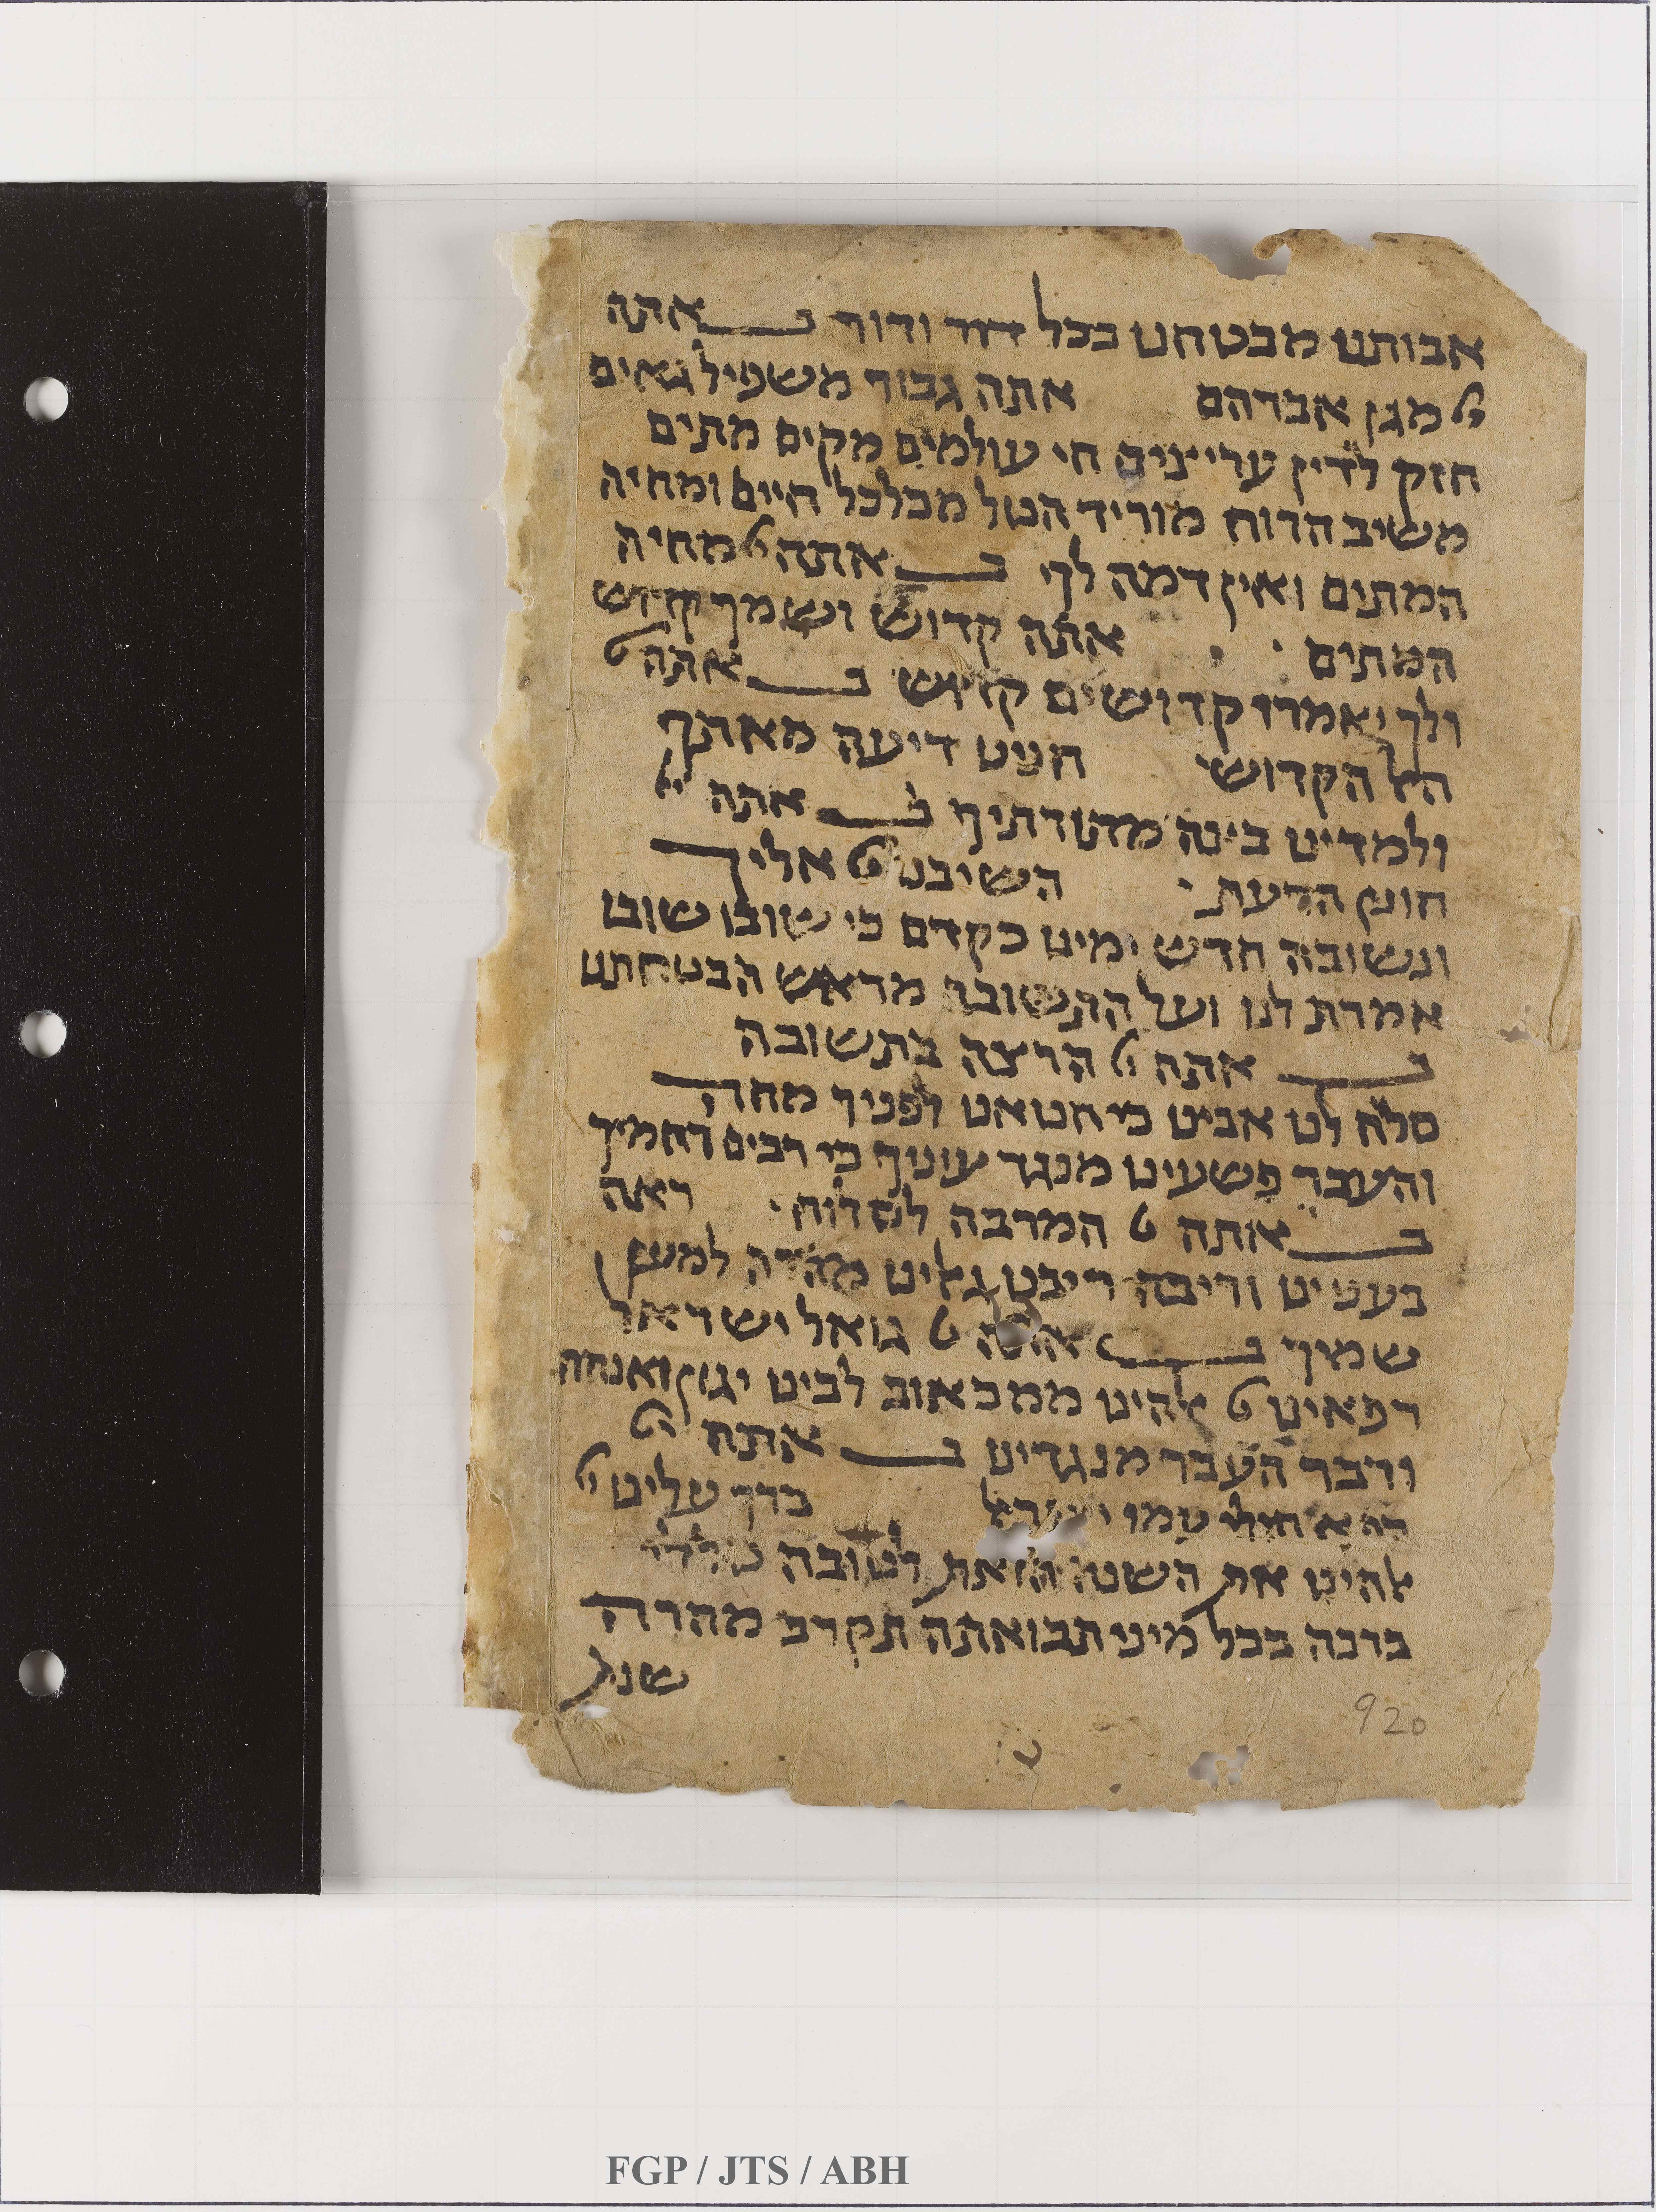 אבותינו מבטחנו בכל דור ודור ב אתה
יי מגן אברהם אתה גבור משפיל גאים
חזק לדין עריצים חי עולמים מקים מתים
משיב הרוח מוריד הטל מכלכל חיים ומחיה
המתים ואין דמה לך ב אתה יי מחיה
המתים אתה קדוש ושמך קדוש
ולך יאמרו קדושים קדוש ב אתה יי
האל הקדוש חנינו דיעה מאתך
ולמדינו בינה מתורתיך ב אתה יי
חונן הדעת השיבנו יי אליך
ונשובה חדש ימינו כקדם כי שובו שובו
אמרת לנו ועל התשובה מראש הבטחתנו
ב אתה יי הרוצה בתשובה
סלח לנו אבינו כי חטאנו לפניך מחה
והעבר פשעינו מנגד עיניך כי רבים רחמיך
ב אתה יי המרבה לסלוח ראה
בענינו וריבה ריבנו גאלינו מהרה למען
שמיך ב אתה יי גואל ישראל
רפאינו יי אלהינו ממכאוב לבינו יגון ואנחה
ודבר העבר מנגדינו ב אתה יי
רופא חולי עמו ישראל ברך עלינו יי
אלהינו את השנה הזאת לטובה
ברכה בכל מיני תבואתה תקרב מהרה
שנת
920
FGP / JTS / ABH